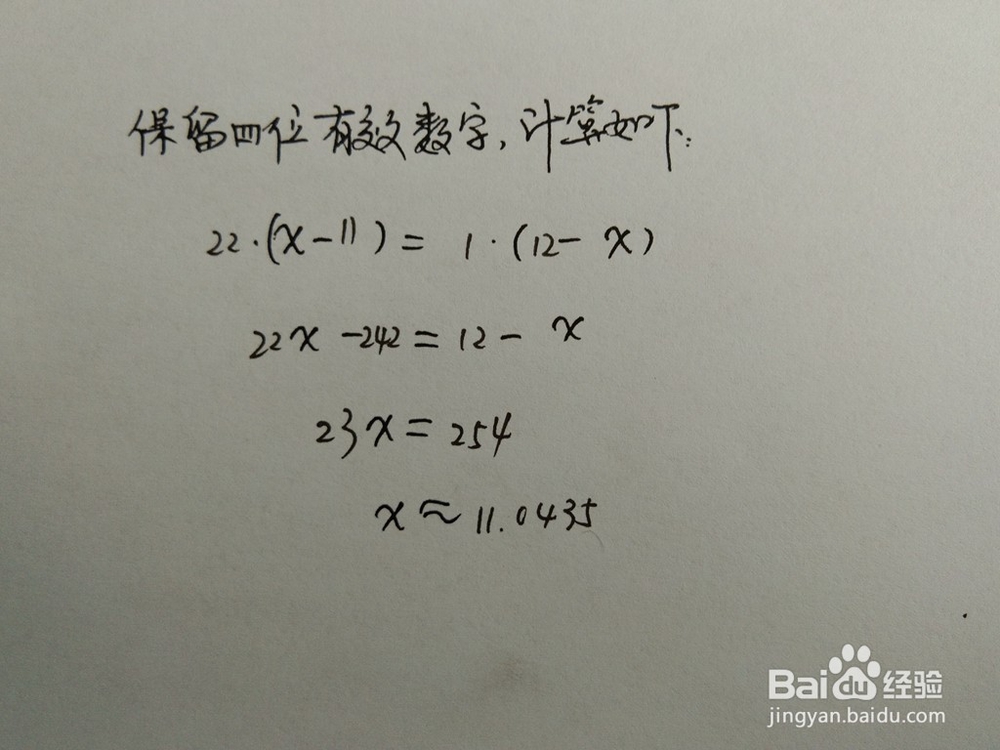 保留四位有效数字,计算如下:
22·(x-11)= 1·(12- x)
22x -242 = 12 - x
23x = 254
x ≈ 11.0435
Baidu经验
jingyan.baidu.com